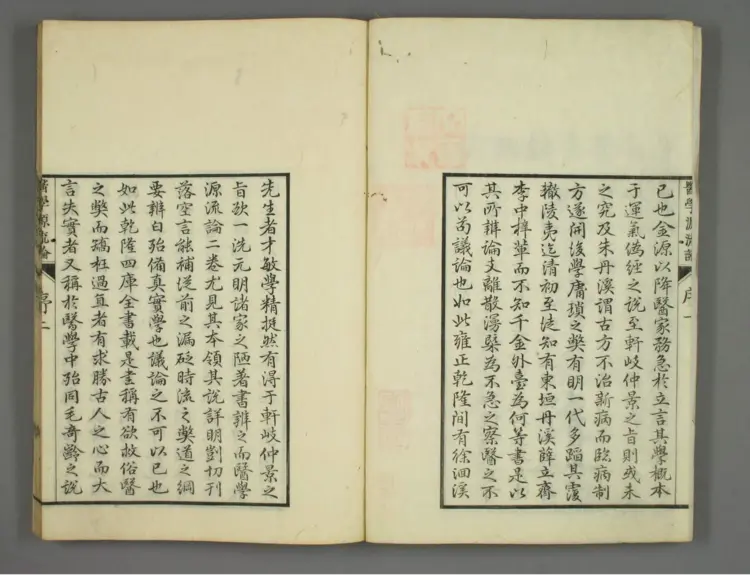 醫學源流論
序一
已也金源以降醫家務急於立言其學概本
于運氣僞經之說至軒岐仲景之旨則或未
之究及朱丹溪謂古方不治新病而臨病制
方遂開後學庸瑣之獘有明一代多蹈其覆
轍陵夷迄清初至徒知有東垣丹溪薛立齋
李中梓輩而不知千金外臺為何等書是以
其所辯論支離散漫槩為不急之察醫之不
可以苟議論也如此雍正乾隆間有徐洄溪
先生者才敏學精挺然有得于軒岐仲景之
旨欲一洗元明諸家之陋著書辨之而醫學
源流論二卷尤見其本領其說詳明剴切刊
落空言能補從前之漏砭時流之獘道之綱
要辨白殆備真實學也議論之不可以已也
如此乾隆四庫全書載是書稱有欲救俗醫
之獘而矯枉過直者有求勝古人之心而大
言失實者又稱於醫學中殆同毛奇齡之說
醫學源流論
序二